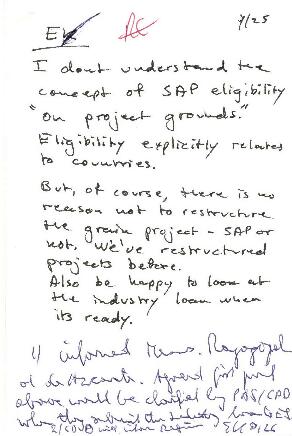 7/25
EK
I dont understand the
concept of SAP eligibility
"on project grounds."
Eligibility explicitly relates
to countries.
But, of course, there is no
reason not to restructure
the grain project - SAP or
not. We've restructured
projects before.
Also be happy to look at
the industry loan when
its ready.
1) informed Messrs. Rajagopal
Agreed first part
above would be clarified by PAS/CPD
when they submit the industry